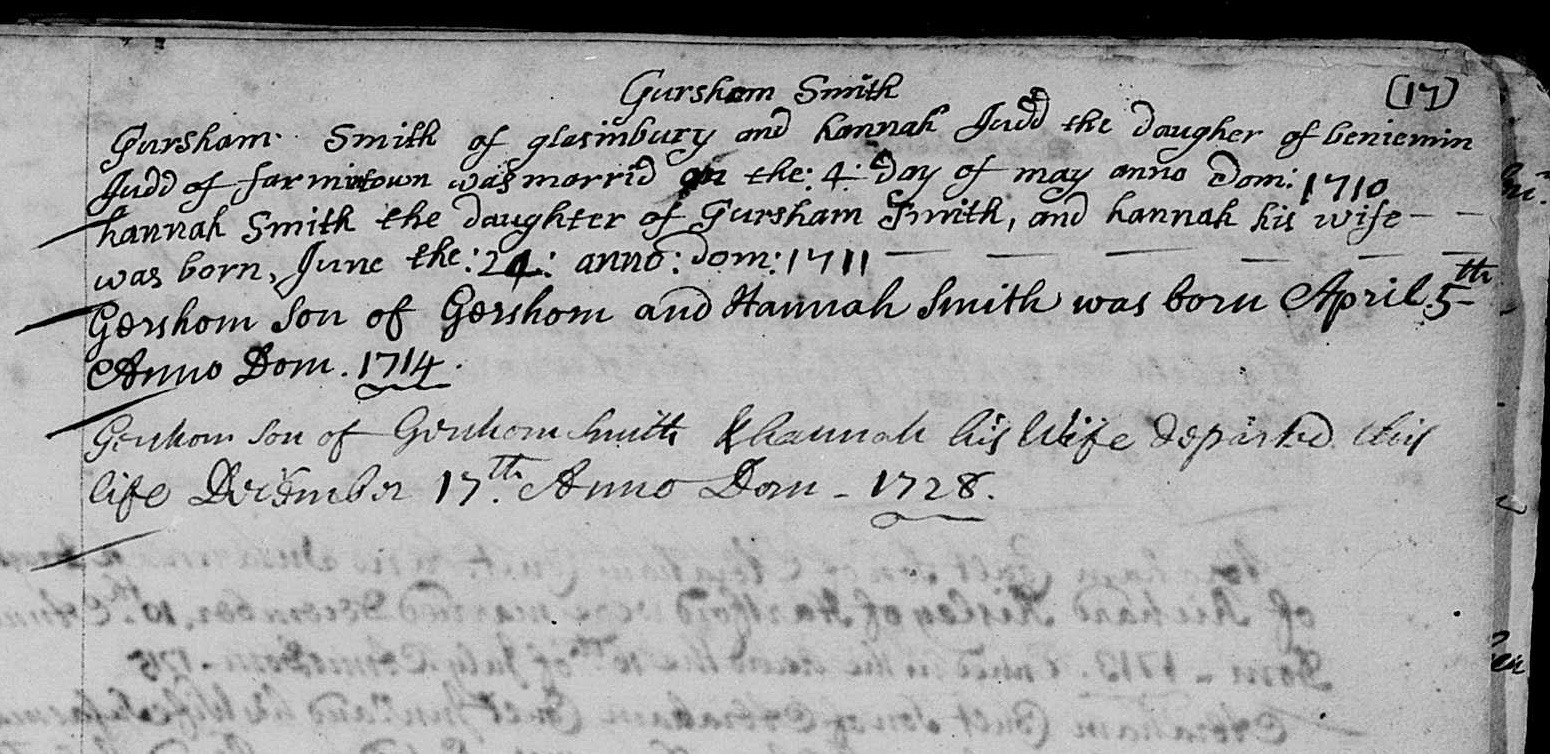 Gursham Smith (17)
Gursham Smith of glasinbury and hannah Judd the daugher of beniemin
Judd of farmintown was marrid on the: 4: day of may anno Dom: 1710
hannah Smith the daughter of Gursham Smith, and hannah his wife – –
was born, June the: 24: anno: dom: 1711 – – – – – –
Gershom Son of Gershom and Hannah Smith was born April 5th
Anno Dom. 1714.
Gershom son of Gershom Smith & hannah his Wife departed this
life December 17th. Anno Dom - 1728.